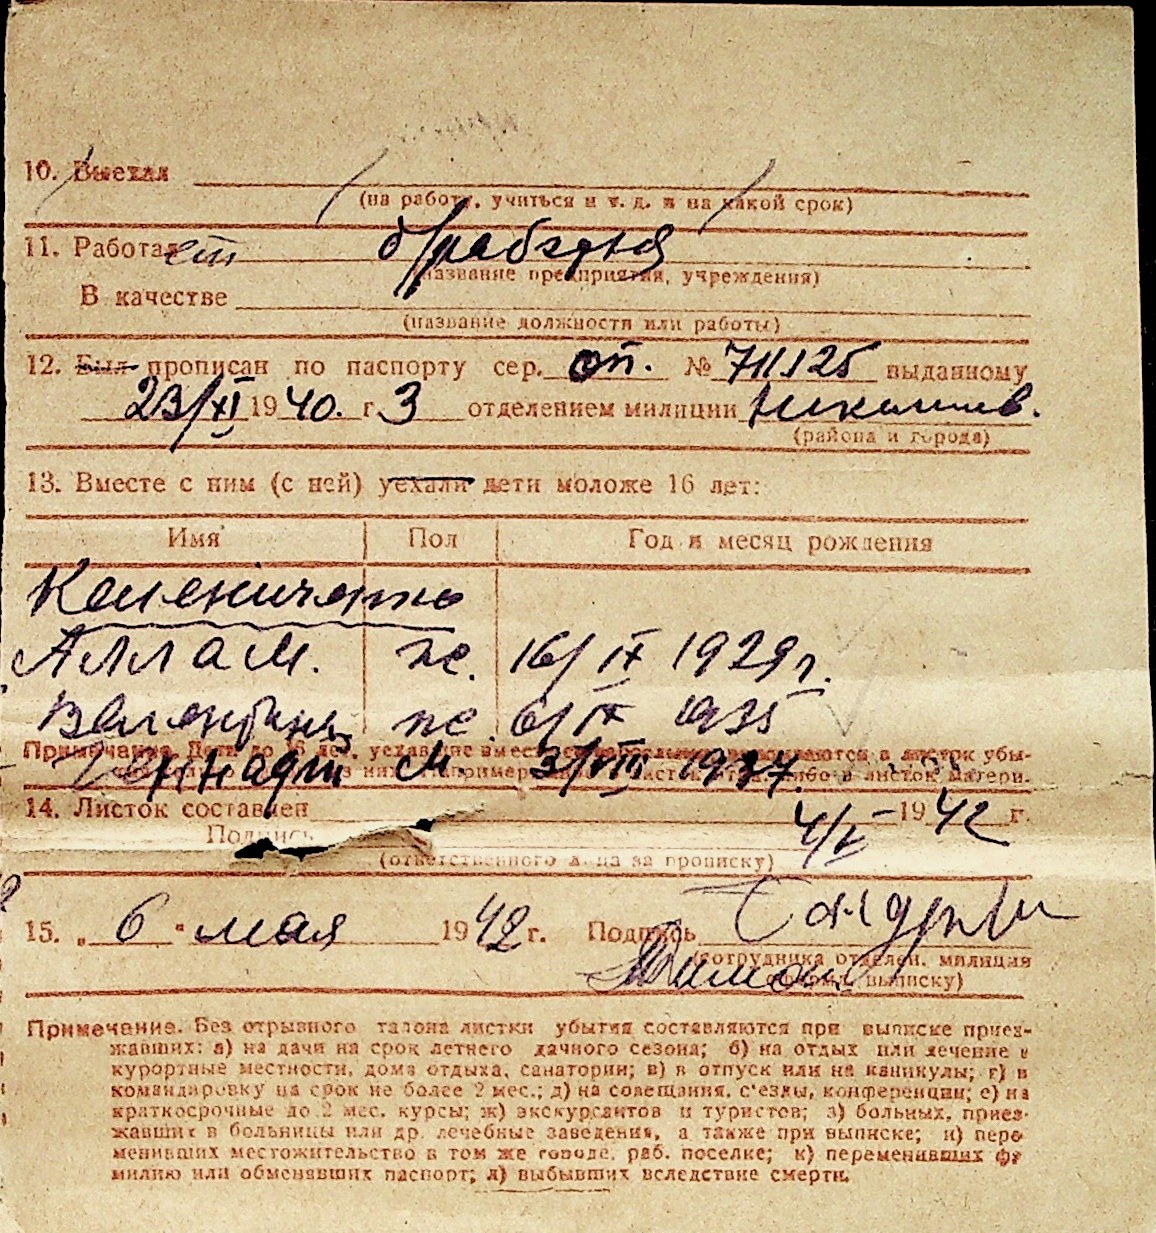 10. Выехал
(на работу, учиться и т. д. и на какой срок)
11. Работает
(название предприятия, учреждения)
В качестве
(название должности или работы)
12. Был прописан по паспорту сер. оп. № 711125 выданному
23/XI 1940. г. 3 отделением милиции Николаев.
(района и города)
13. Вместе с ним (с ней) уехали дети моложе 16 лет:
Имя Пол Год и месяц рождения
Алла М. ж. 16/IX 1929 г.
Валентина ж. 6/IX 1935
Примечание. Дети до 16 лет, уехавшие вместе в листок убы-
либо в листок матери.
Геннадий м. 3/VIII 1937.
14. Листок составлен 4/V 1942 г.
Подпись
(ответственного лица за прописку)
15. „6" мая 1942 г. Подпись
(сотрудника отделен. милиции
выписку)
Примечание. Без отрывного талона листки убытия составляются при выписке приез-
жавших: а) на дачи на срок летнего дачного сезона; б) на отдых или лечение в
курортные местности, дома отдыха, санатории; в) в отпуск или на каникулы; г) в
командировку на срок не более 2 мес.; д) на совещания, с'езды, конференции; е) на
краткосрочные до 2 мес. курсы; ж) экскурсантов и туристов; з) больных, приез-
жавших в больницы или др. лечебные заведения, а также при выписке; и) пере
менивших местожительство в том же городе, раб. поселке; к) переменивших фа
милию или обменявших паспорт; л) выбывших вследствие смерти.